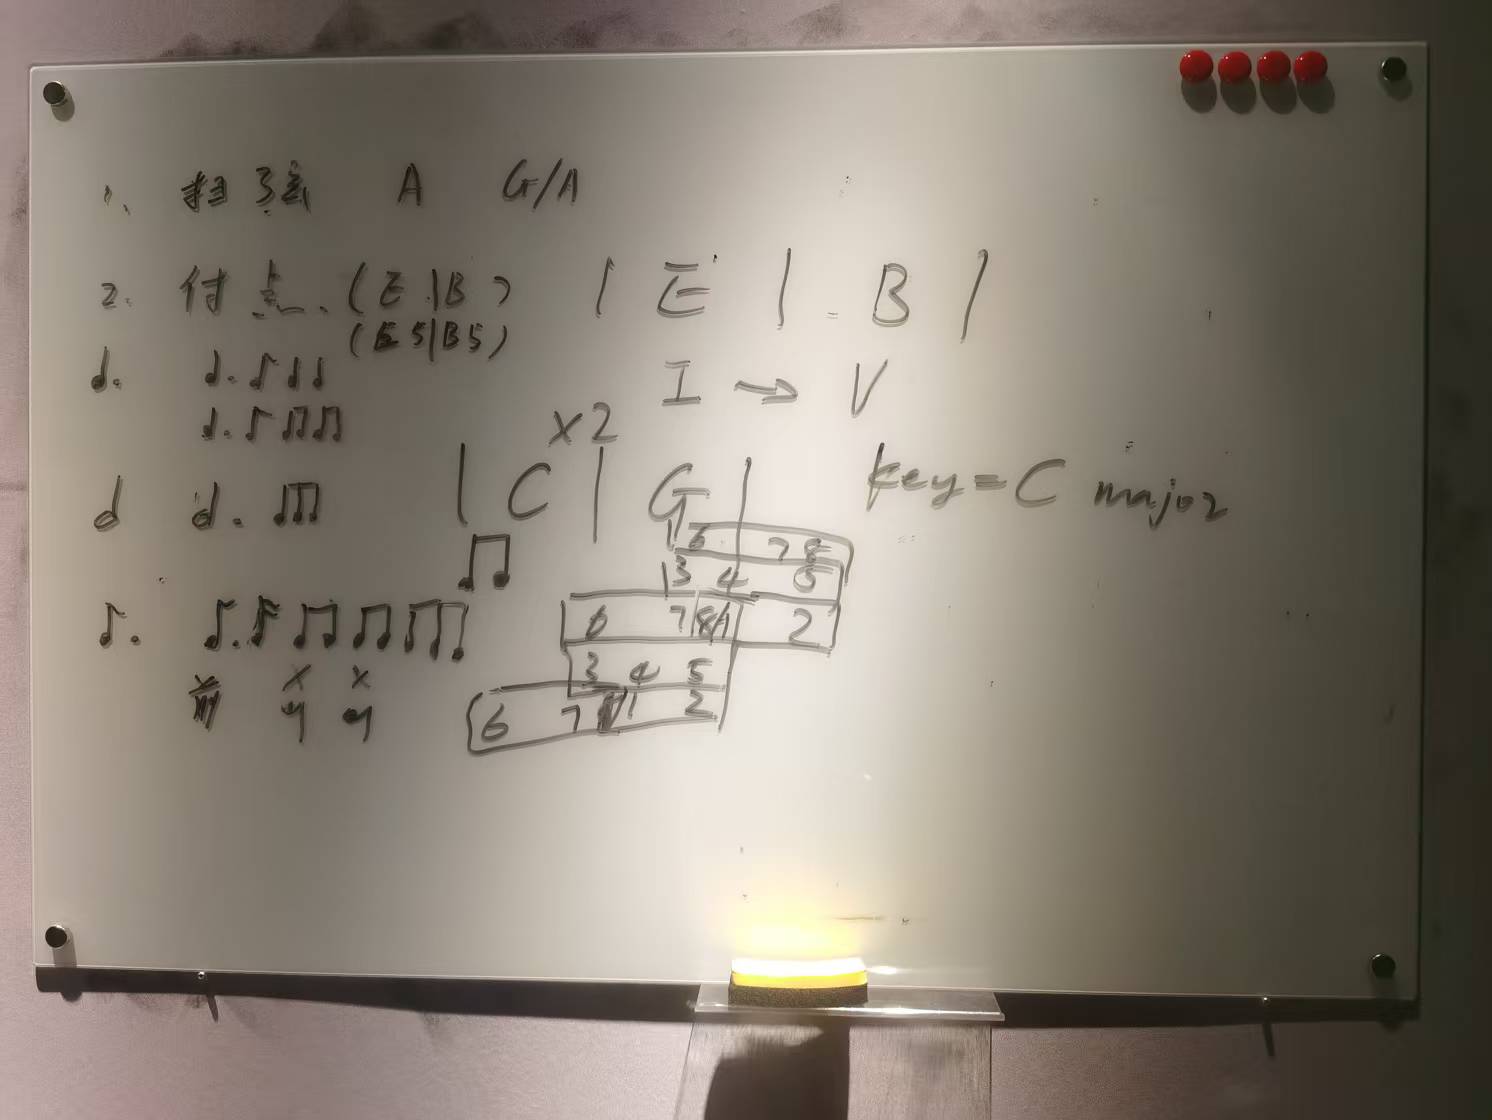 1. 扫弦 A G/A
2. 付点. (E|B) | E | B |
(E5|B5)
I → V
×2
| C | G | key=C major
6 7 8
3 4 5
6 7 8/1 2
3 4 5
6 7 1 2